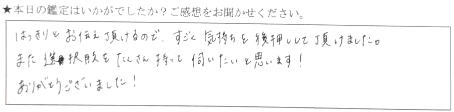 ★本日の鑑定はいかがでしたか？ご感想をお聞かせください。
はっきりとお伝え頂けるので、すごく気持ちを後押しして頂けました。
また選択肢をたくさん持って伺いたいと思います！
ありがとうございました！